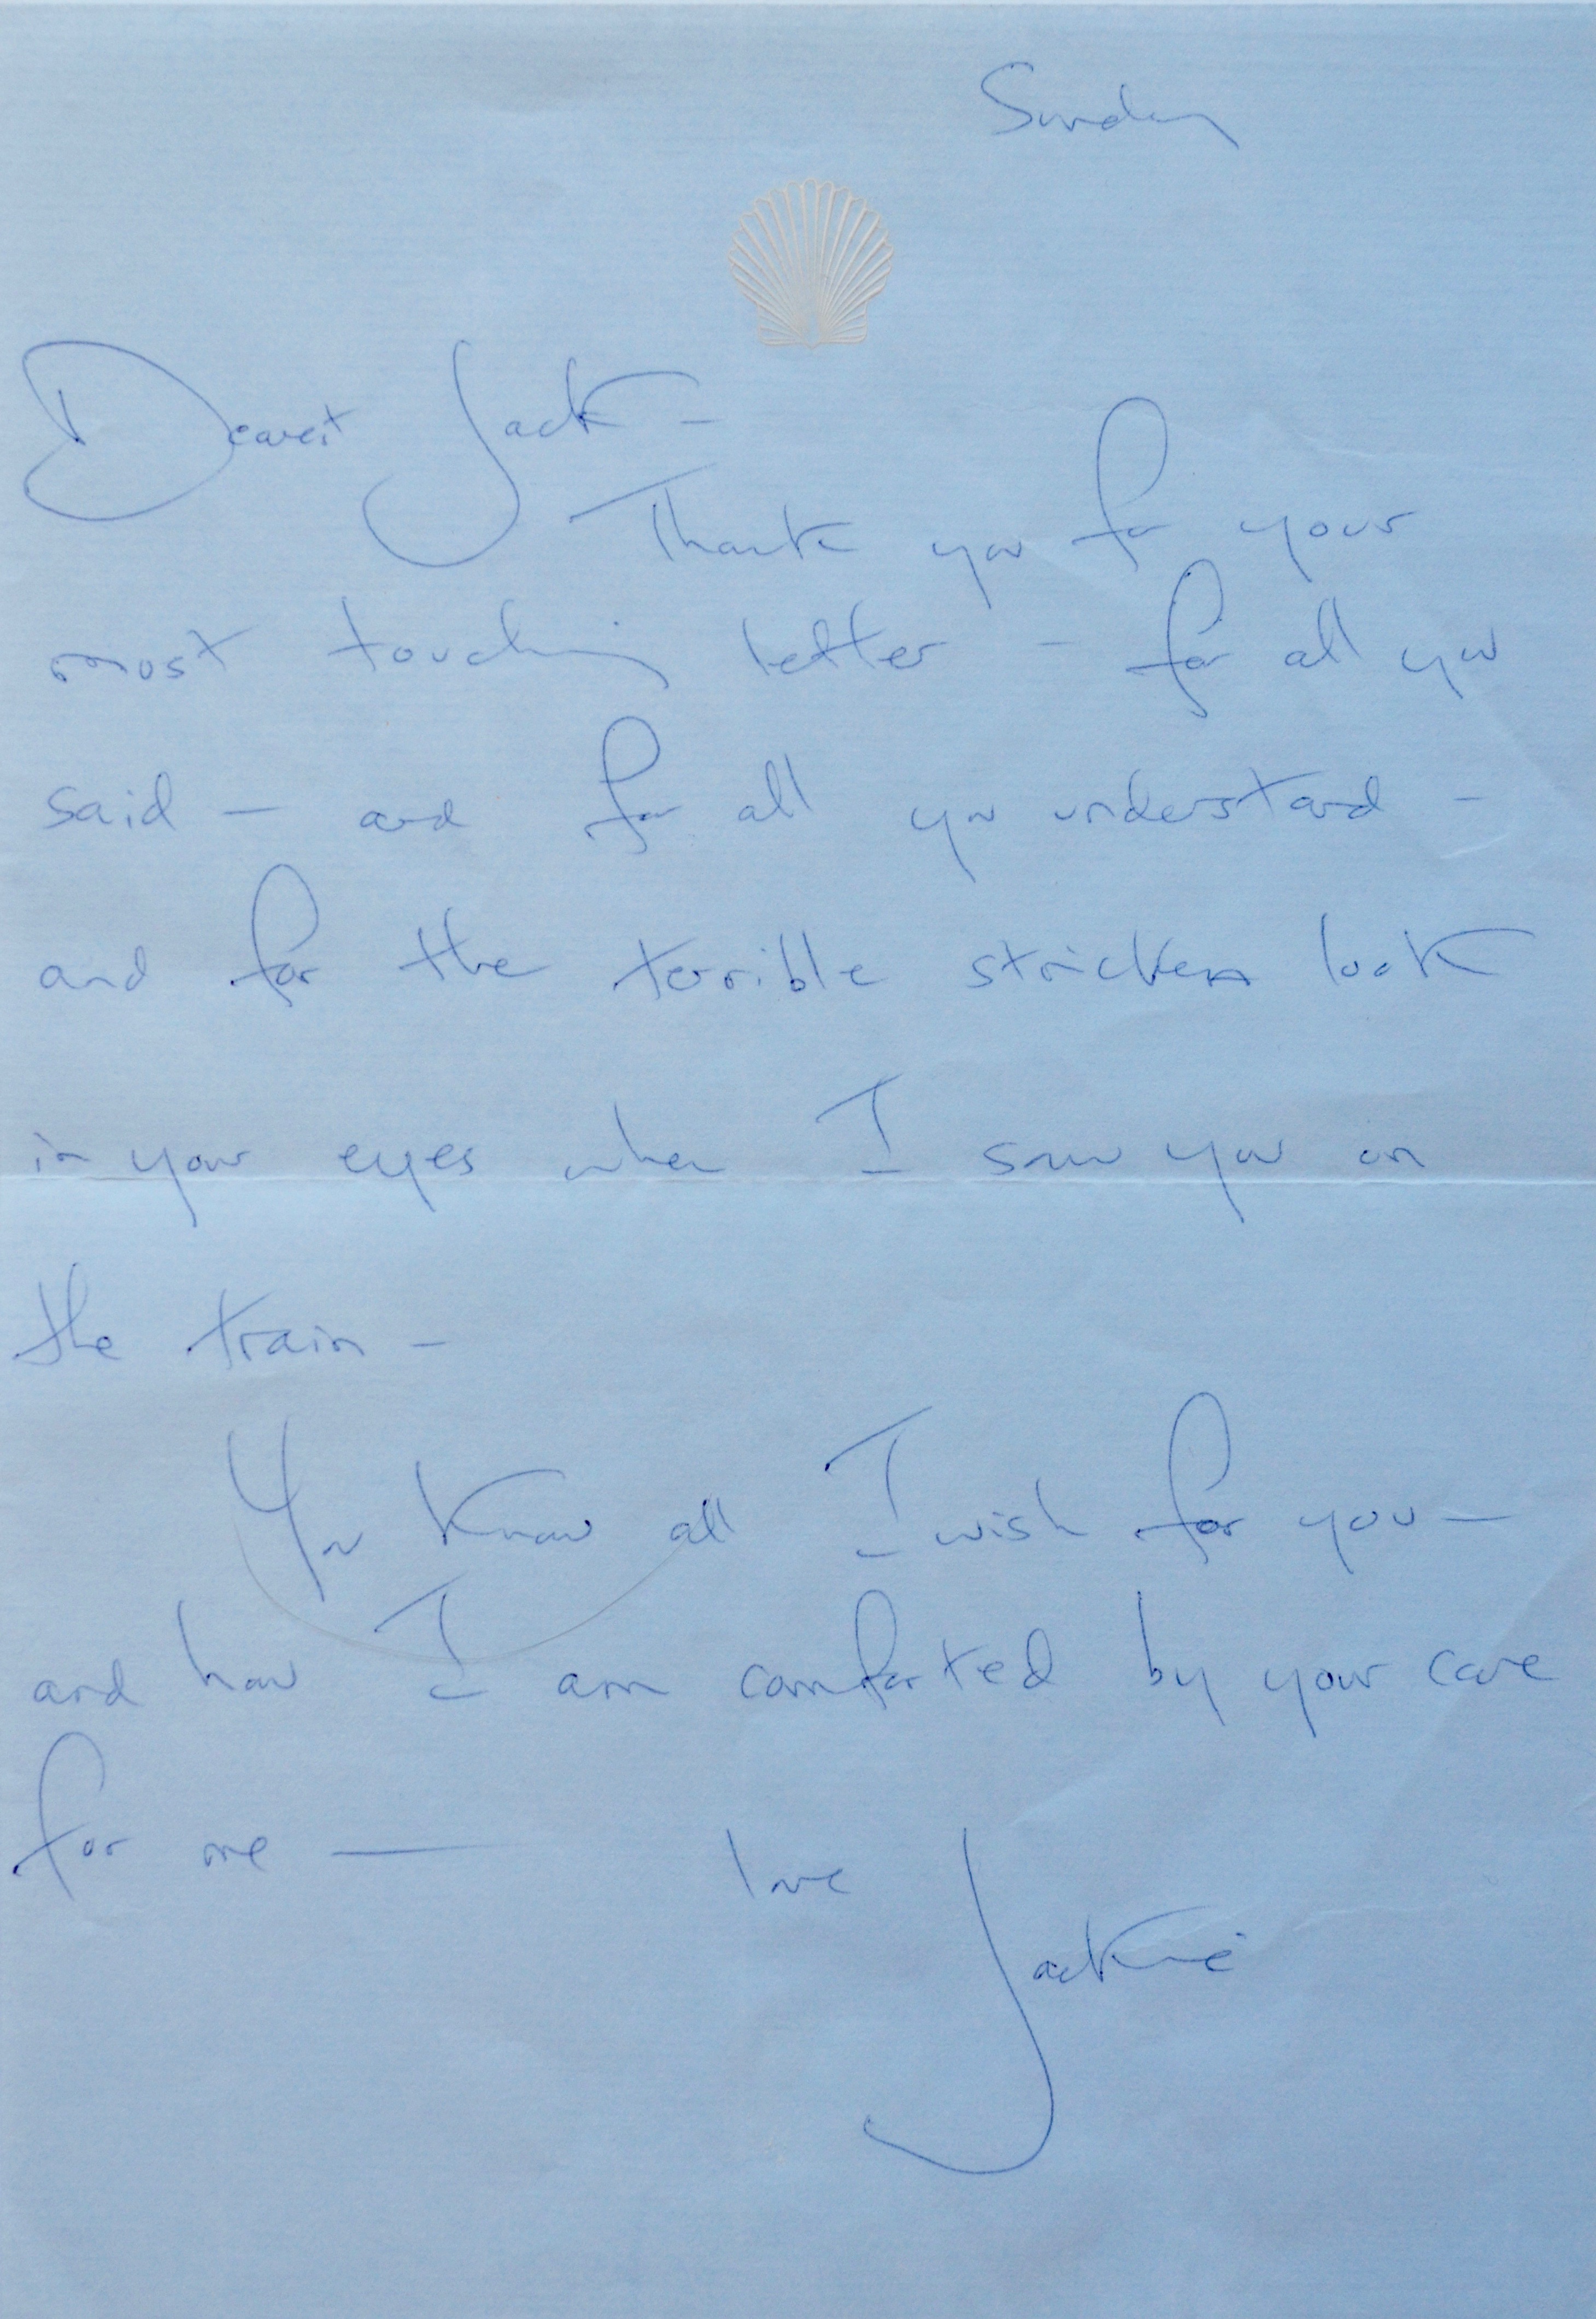 Sunday
Dearest Jack –
Thank you for your
most touching letter – for all you
said – and for all you understand –
and for the terrible stricken look
in your eyes when I saw you on
the train –
You know all I wish for you –
and how I am comforted by your care
for me —
love
Jackie